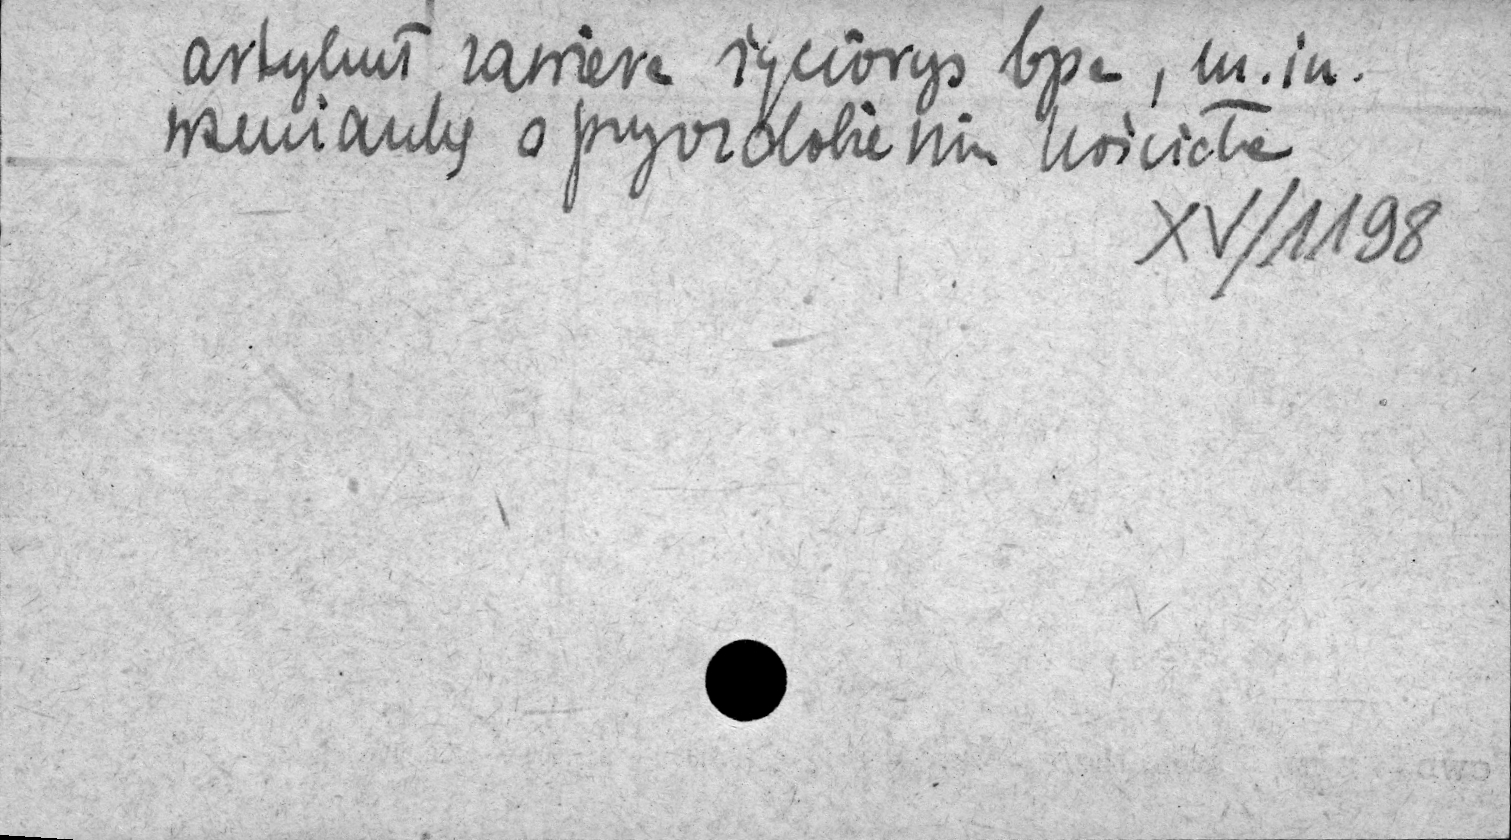 artykuł zawiera życiorys bpa, m.in.
wzmiankę o przyozdobieniu kościoła
XV/1198